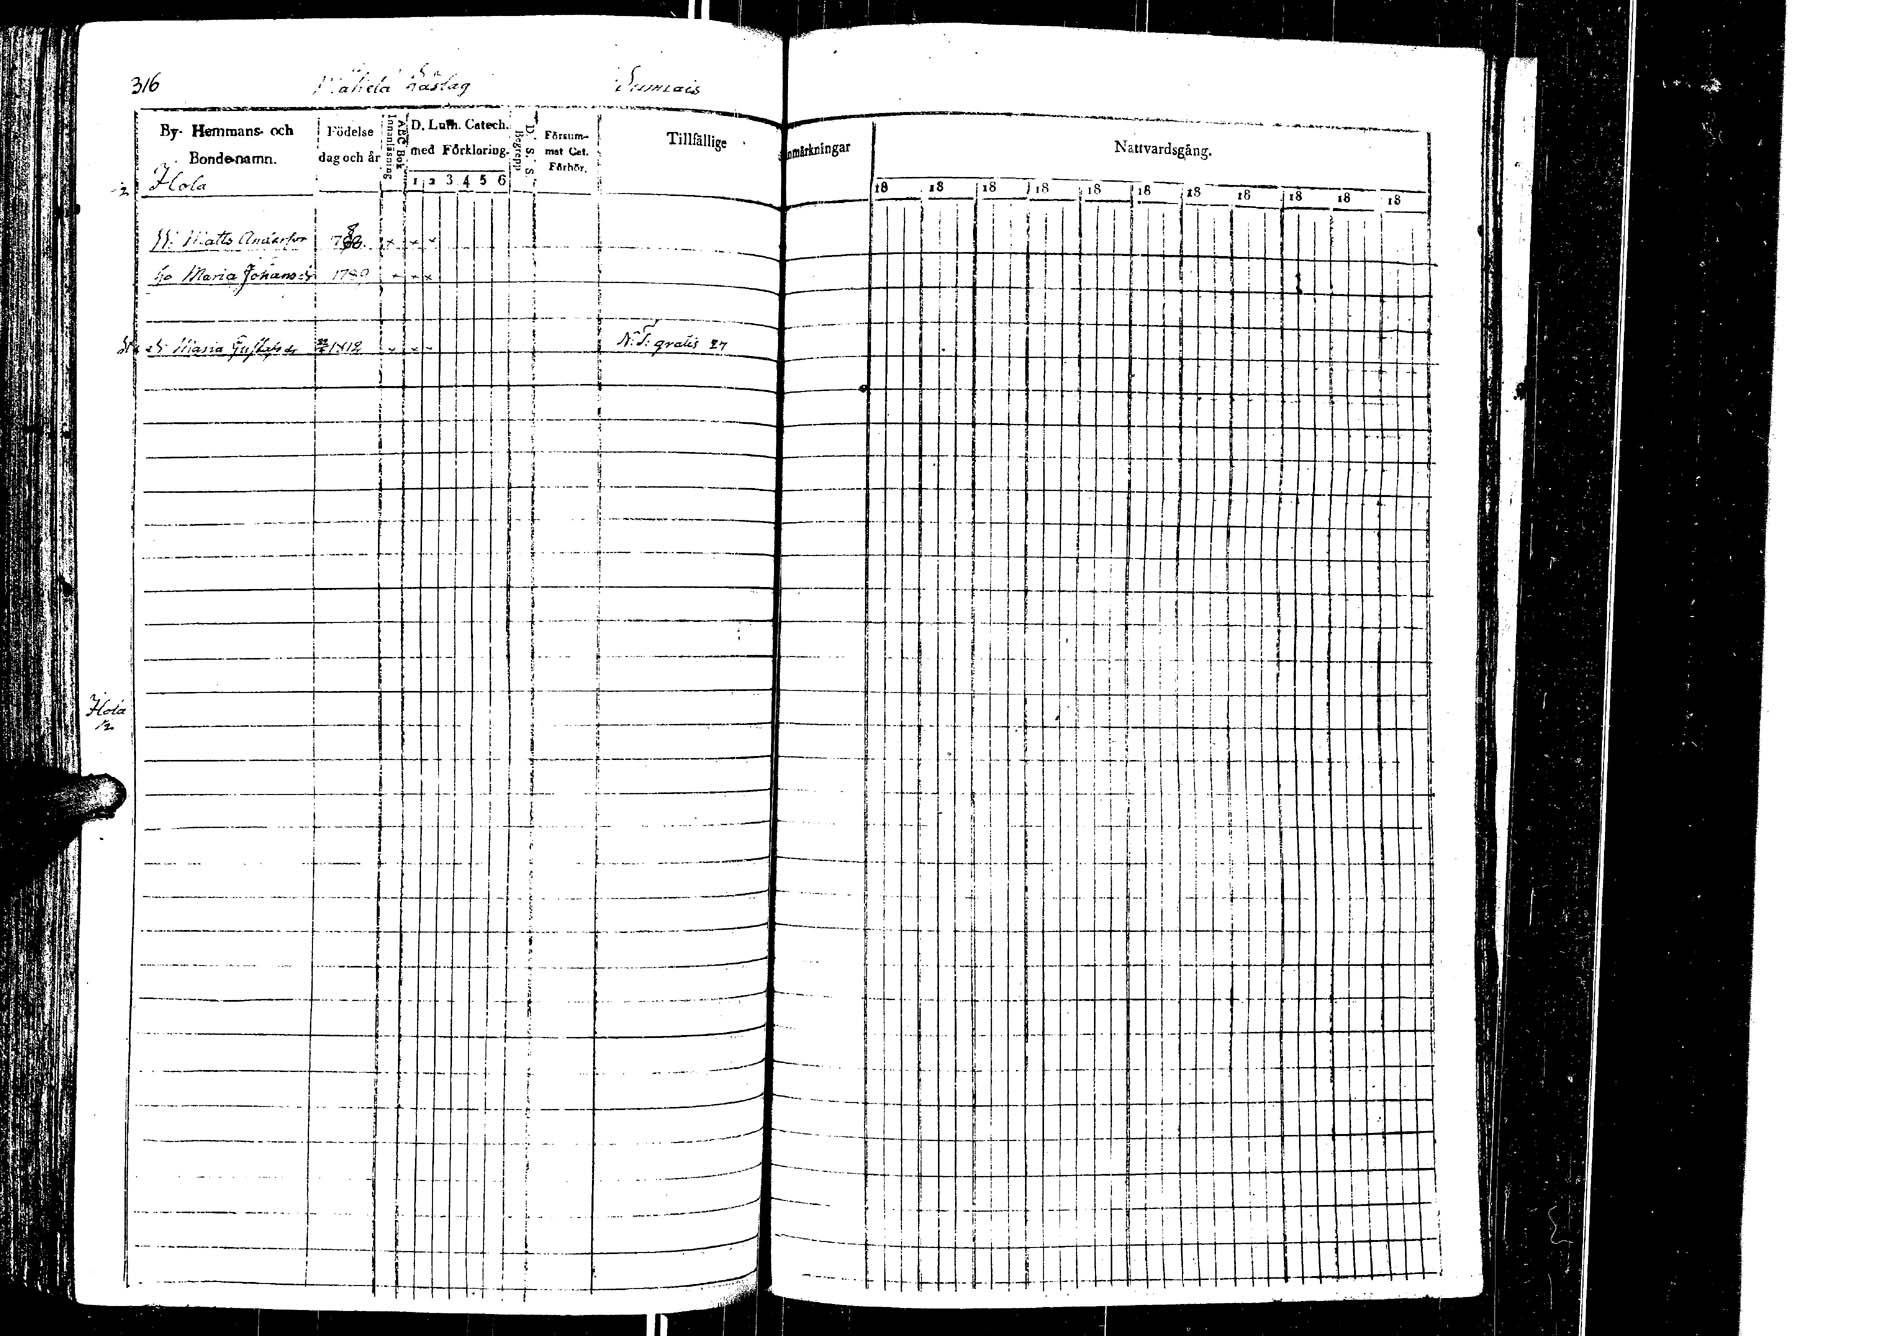 316 Läslag
By- Hemmans- och Bondenamn.
Födelse dag och år
Innanläsning
ABC Bok
D. Luth. Catech. med Förklaring.
1 2 3 4 5 6
D. S. S.
Begrepp
Försummat Cat. Förhör.
Tillfällige
Anmärkningar
Nattvardsgång.
18 18 18 18 18 18 18 18 18 18 18
Hola
Matts
Maria Johansdr
Maria 1812 N. T: gratis 27
Hola
1/2